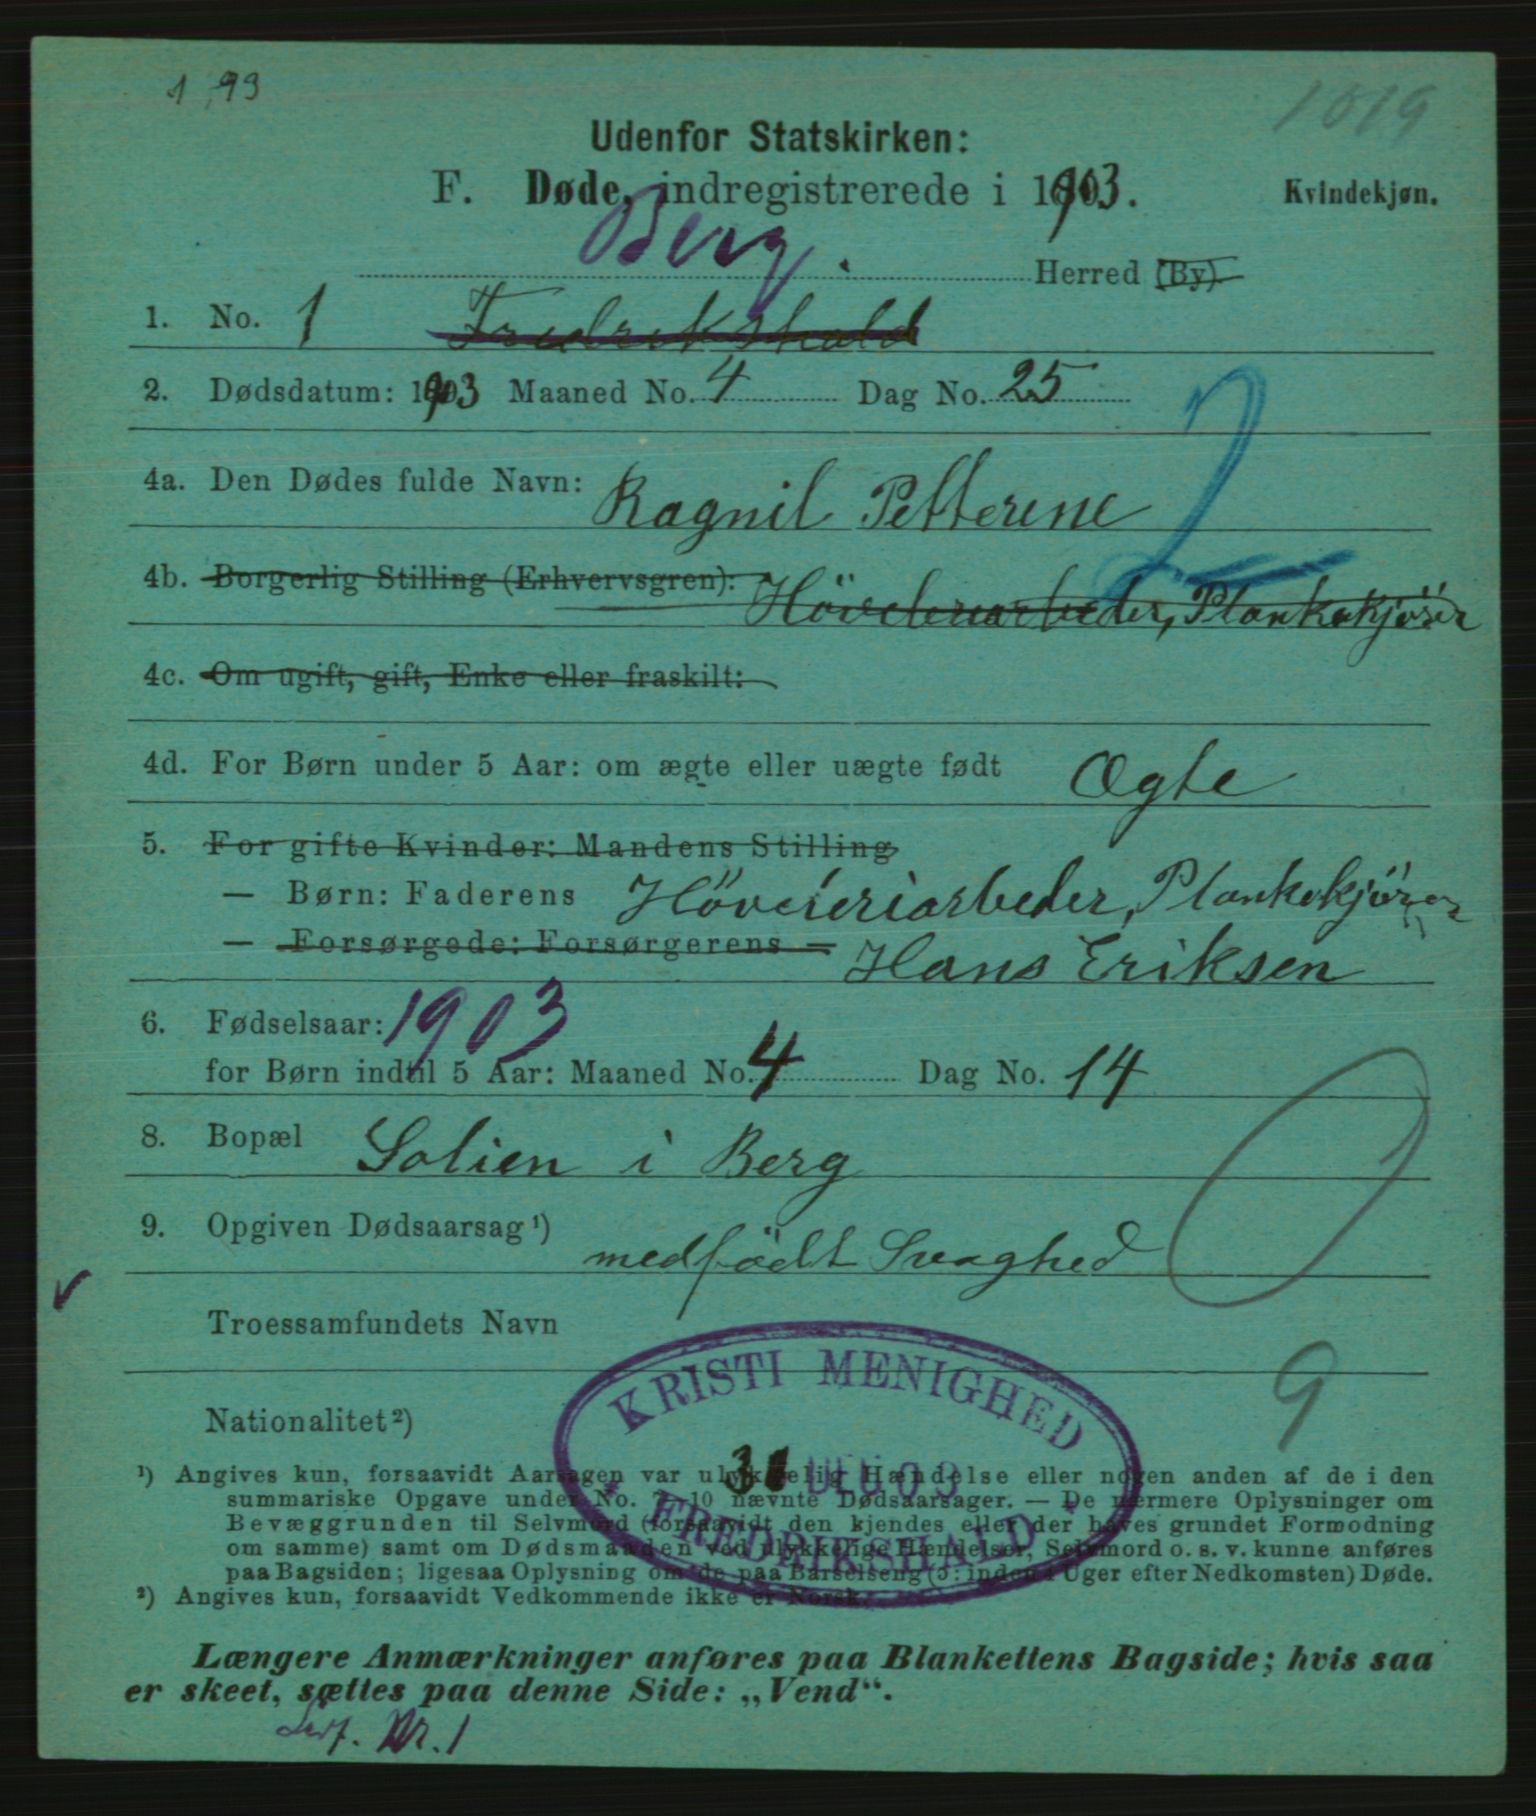 1,93
1819
Udenfor Statskirken:
F. Døde, indregistrerede i 1903. Kvindekjøn.
Berg. Herred (By)
1. No. 1 Fredrikshald
2. Dødsdatum: 1903 Maaned No. 4 Dag No. 25
2
4a. Den Dødes fulde Navn: Ragnil Petterene
4b. Borgerlig Stilling (Erhvervsgren): Hövleriarbeder, Plankekjörer
4c. Om ugift, gift, Enke eller fraskilt:
4d. For Børn under 5 Aar: om ægte eller uægte født Ægte
5. For gifte Kvinder: Mandens Stilling
— Børn: Faderens Hövleriarbeder, Plankekjörer
— Forsørgede: Forsørgerens — Hans Eriksen
6. Fødselsaar: 1903
for Børn indtil 5 Aar: Maaned No. 4 Dag No. 14
8. Bopæl Solien i Berg
9. Opgiven Dødsaarsag ¹) medfödt Svaghed
Troessamfundets Navn
KRISTI MENIGHED
9
Nationalitet ²)
31 DEC 03
FREDRIKSHALD
¹) Angives kun, forsaavidt Aarsagen var ulykkelig Hændelse eller nogen anden af de i den
summariske Opgave under No. 7—10 nævnte Dødsaarsager. — De nærmere Oplysninger om
Bevæggrunden til Selvmord (forsaavidt den kjendes eller der haves grundet Formodning
om samme) samt om Dødsmaaden ved ulykkelige Hændelser, Selvmord o. s. v. kunne anføres
paa Bagsiden; ligesaa Oplysning om de paa Barselseng (ɔ: inden 4 Uger efter Nedkomsten) Døde.
²) Angives kun, forsaavidt Vedkommende ikke er Norsk.
Længere Anmærkninger anføres paa Blankettens Bagside; hvis saa
er skeet, sættes paa denne Side: „Vend“.
Nr. 1